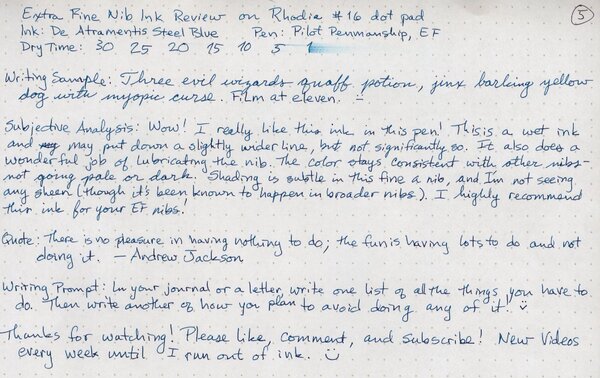 Extra Fine Nib Ink Review on Rhodia #16 dot pad
5
Ink: De Atramentis Steel Blue Pen: Pilot Penmanship, EF
Dry Time: 30 25 20 15 10 5 1
Writing Sample: Three evil wizards quaff potion, jinx barking yellow
dog with myopic curse. Film at eleven.
Subjective Analysis: Wow! I really like this ink in this pen! This is a wet ink
and may put down a slightly wider line, but not significantly so. It also does a
wonderful job of lubricating the nib. The color stays consistent with other nibs-
not going pale or dark. Shading is subtle in this fine a nib, and I'm not seeing
any sheen (though it's been known to happen in broader nibs). I highly recommend
this ink for your EF nibs!
Quote: There is no pleasure in having nothing to do; the fun is having lots to do and not
doing it. — Andrew Jackson
Writing Prompt: In your journal or a letter, write one list of all the things you have to
do. Then write another of how you plan to avoid doing any of it! ¨
Thanks for watching! Please like, comment, and subscribe! New Videos
every week until I run out of ink. ☺